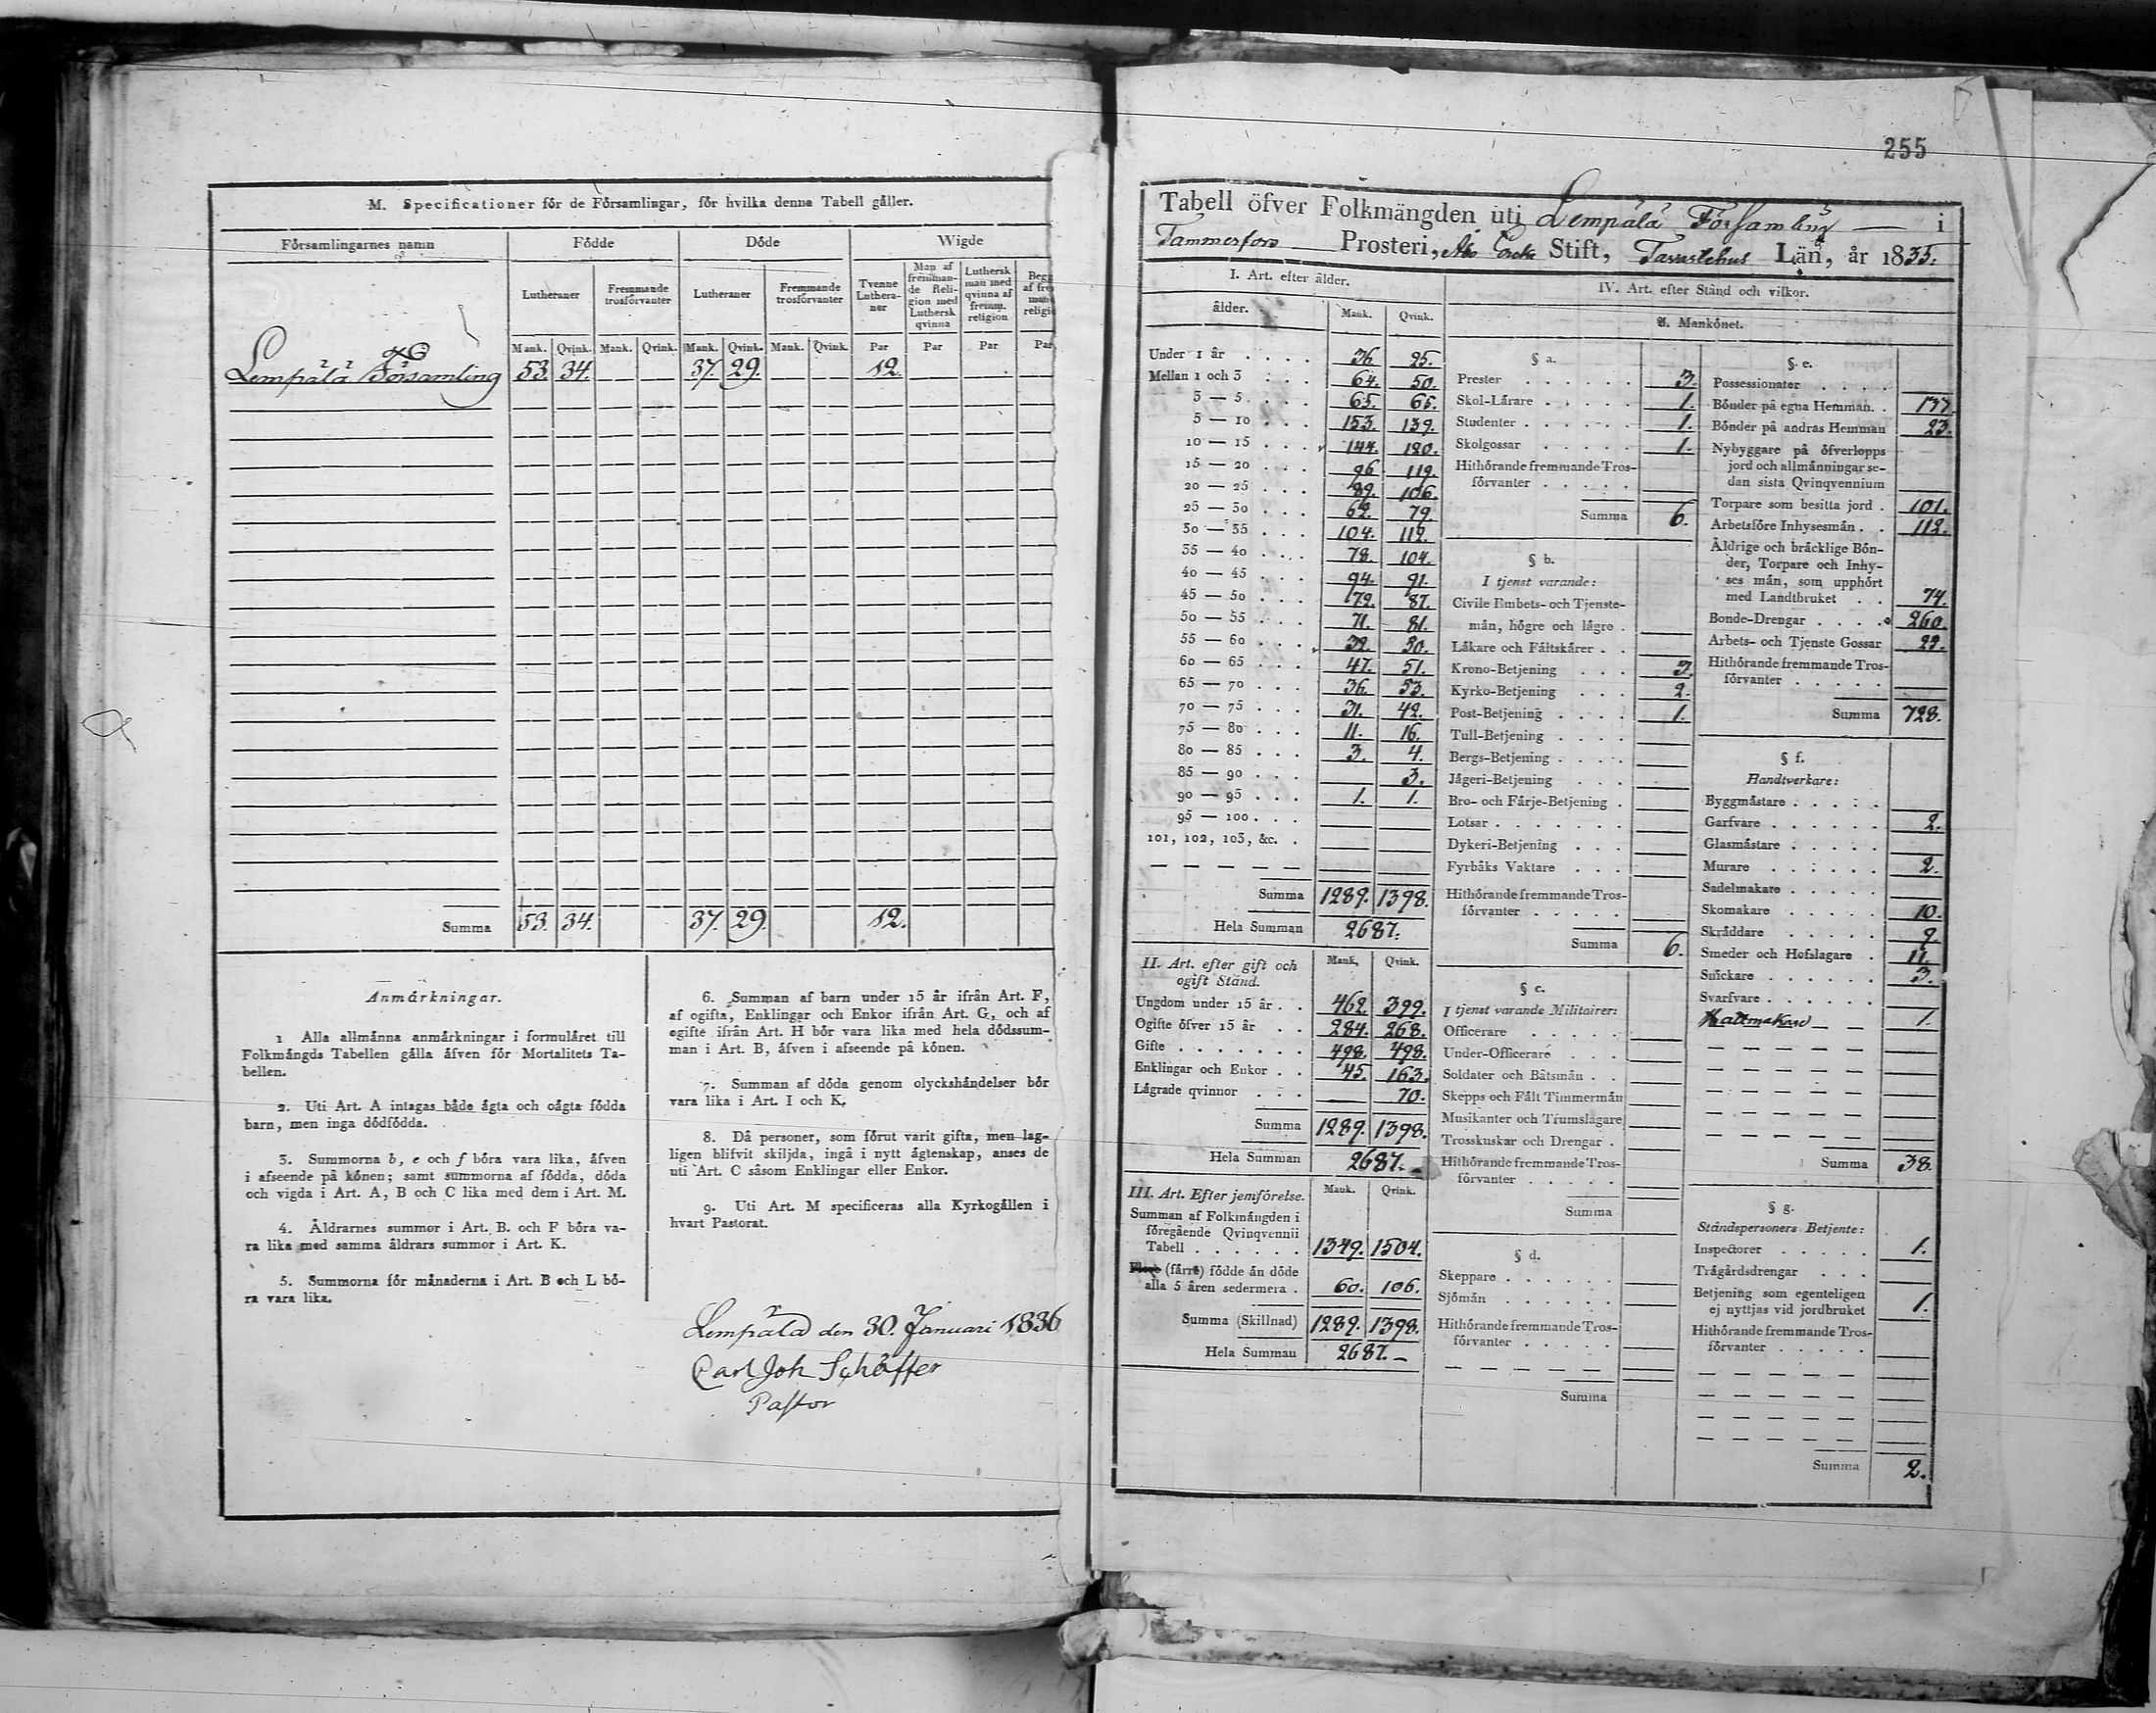 M. Specificationer för de Församlingar, för hvilka denna Tabell gäller.
Församlingarnes namn Födde Döde Wigde
Lutheraner Fremmande trosförvanter Lutheraner Fremmande trosförvanter Tvenne Lutheraner Man af fremmande Religion med Luthersk qvinna Luthersk man med qvinna af fremm. religion
Mank. Qvink. Mank. Qvink. Mank. Qvink. Mank. Qvink. Par Par Par Par
Lempälä Församling 53. 34. 37. 29. 12.
Summa 53. 34. 37. 29. 12.
Anmärkningar.
1 Alla allmänna anmärkningar i formuläret till
Folkmängds Tabellen gälla äfven för Mortalitets Ta-
bellen.
2. Uti Art. A intagas både ägta och oägta födda
barn, men inga dödfödda.
3. Summorna b, e och f böra vara lika, äfven
i afseende på könen; samt summorna af födda, döda
och vigda i Art. A, B och C lika med dem i Art. M.
4. Åldrarnes summor i Art. B. och F böra va-
ra lika med samma åldrars summor i Art. K.
5. Summorna för månaderna i Art. B och L bö-
ra vara lika.
6. Summan af barn under 15 år ifrån Art. F,
af ogifta, Enklingar och Enkor ifrån Art. G, och af
ogifte ifrån Art. H bör vara lika med hela dödssum-
man i Art. B, äfven i afseende på könen.
7. Summan af döda genom olyckshändelser bör
vara lika i Art. I och K.
8. Då personer, som förut varit gifta, men lag-
ligen blifvit skiljda, ingå i nytt ägtenskap, anses de
uti Art. C såsom Enklingar eller Enkor.
9. Uti Art. M specificeras alla Kyrkogällen i
hvart Pastorat.
Lempälä den 30. Januari 1836
Carl Joh Schäffer
Pastor
255
Tabell öfver Folkmängden uti Lempälä Församling — i
Tammerfors Prosteri, Åbo Erke Stift, Tavastehus Län, år 1835.
I. Art. efter ålder.
ålder. Mank. Qvink.
Under 1 år . . . . 36 25.
Mellan 1 och 3 . . . 64. 50.
3 — 5 . . . . 65. 65.
5 — 10 . . . 153. 139.
10 — 15 . . . 144. 120.
15 — 20 . . . 96 119.
20 — 25 . . . 89. 106.
25 — 30 . . . 62. 79.
30 — 35 . . . 104. 112.
35 — 40 . . . 78. 104.
40 — 45 . . . 94. 91.
45 — 50 . . . 72. 87.
50 — 55 . . . 71. 81.
55 — 60 . . . 32. 30.
60 — 65 . . . 47. 51.
65 — 70 . . . 36. 53.
70 — 75 . . . 31. 42.
75 — 80 . . . 11. 16.
80 — 85 . . . 3. 4.
85 — 90 . . . 3.
90 — 95 . . . 1. 1.
95 — 100 . . .
101, 102, 103, &c. .
Summa 1289. 1398.
Hela Summan 2687.
II. Art. efter gift och
ogift Stånd. Mank. Qvink.
Ungdom under 15 år . . 462. 399.
Ogifte öfver 15 år . . 284. 268.
Gifte . . . . . . . 498. 498.
Enklingar och Enkor . . 45. 163.
Lägrade qvinnor . . . 70.
Summa 1289. 1398.
Hela Summan 2687.
III. Art. Efter jemförelse. Mank. Qvink.
Summan af Folkmängden i
föregående Qvinqvennii
Tabell . . . . . . 1349. 1504.
Flere (färre) födde än döde
alla 5 åren sedermera . 60. 106.
Summa (Skillnad) 1289. 1398.
Hela Summan 2687. –
IV. Art. efter Stånd och vilkor.
A. Mankönet.
§ a.
Prester . . . . . . 3.
Skol-Lärare . . . . . 1.
Studenter . . . . . . 1.
Skolgossar . . . . . 1.
Hithörande fremmande Tros-
förvanter . . . . .
Summa 6.
§ b.
I tjenst varande:
Civile Embets- och Tjenste-
män, högre och lägre .
Läkare och Fältskärer . .
Krono-Betjening . . . 3.
Kyrko-Betjening . . . 2.
Post-Betjening . . . . 1.
Tull-Betjening . . . .
Bergs-Betjening . . . .
Jägeri-Betjening . . .
Bro- och Färje-Betjening .
Lotsar . . . . . . .
Dykeri-Betjening . . .
Fyrbåks Vaktare . . .
Hithörande fremmande Tros-
förvanter . . . . .
Summa 6.
§ c.
I tjenst varande Militairer:
Officerare . . . . .
Under-Officerare . . .
Soldater och Båtsmän . .
Skepps och Fält Timmermän
Musikanter och Trumslagare
Trosskuskar och Drengar .
Hithörande fremmande Tros-
förvanter . . . . .
Summa
§ d.
Skeppare . . . . . .
Sjömän . . . . . .
Hithörande fremmande Tros-
förvanter . . . . .
Summa
§ e.
Possessionater . . . .
Bönder på egna Hemman. . 137.
Bönder på andras Hemman 23.
Nybyggare på öfverlopps
jord och allmänningar se-
dan sista Qvinqvennium
Torpare som besitta jord . 101.
Arbetsföre Inhysesmän . . 112.
Åldrige och bräcklige Bön-
der, Torpare och Inhy-
ses män, som upphört
med Landtbruket . . 74.
Bonde-Drengar . . . . 260.
Arbets- och Tjenste Gossar 22.
Hithörande fremmande Tros-
förvanter . . . . .
Summa 728.
§ f.
Handtverkare:
Byggmästare . . . . .
Garfvare . . . . . . 2.
Glasmästare . . . . .
Murare . . . . . 2.
Sadelmakare . . . . .
Skomakare . . . . . 10.
Skräddare . . . . . 9.
Smeder och Hofslagare . 11.
Snickare . . . . . . 3.
Svarfvare . . . . . .
Hattmakare — — 1.
Summa 38.
§ g.
Ståndspersoners Betjente:
Inspectorer . . . . . 1.
Trägårdsdrengar . . .
Betjening som egenteligen
ej nyttjas vid jordbruket 1.
Hithörande fremmande Tros-
förvanter . . . . .
Summa 2.